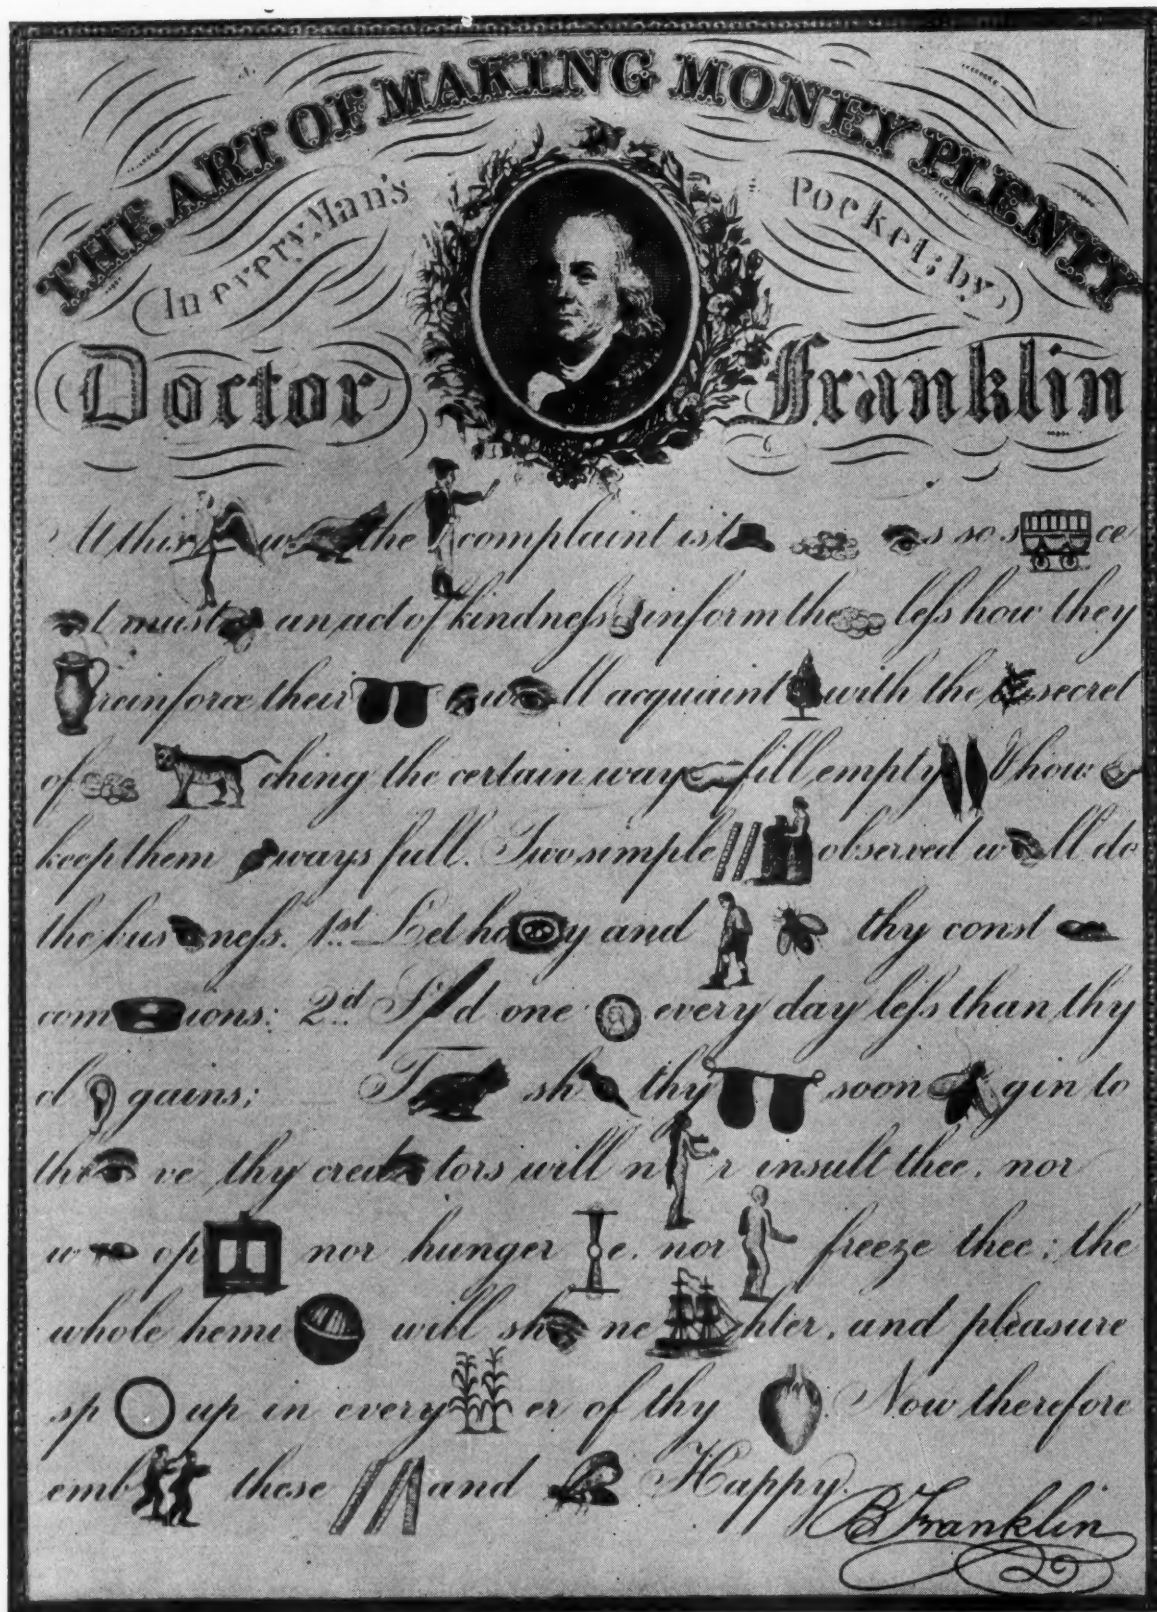 THE ART OF MAKING MONEY PLENTY
In every Man's Pocket; by
Doctor Franklin
At this w the complaint is t s so s ce
t must an act of kindneſs inform the leſs how they
reinforce their w ll acquaint with the secret
of ching the certain way fill empty & how
keep them ways full. Two simple observed w ll do
the bus neſs. 1st Let ho y and thy const
com ions: 2d Sp d one every day leſs than thy
cl gains; T sh thy soon gin to
thr ve thy cred tors will n r insult thee, nor
w op nor hunger e, nor freeze thee; the
whole hemi will sh ne hter, and pleasure
sp up in every er of thy Now therefore
emb these and Happy.
B Franklin